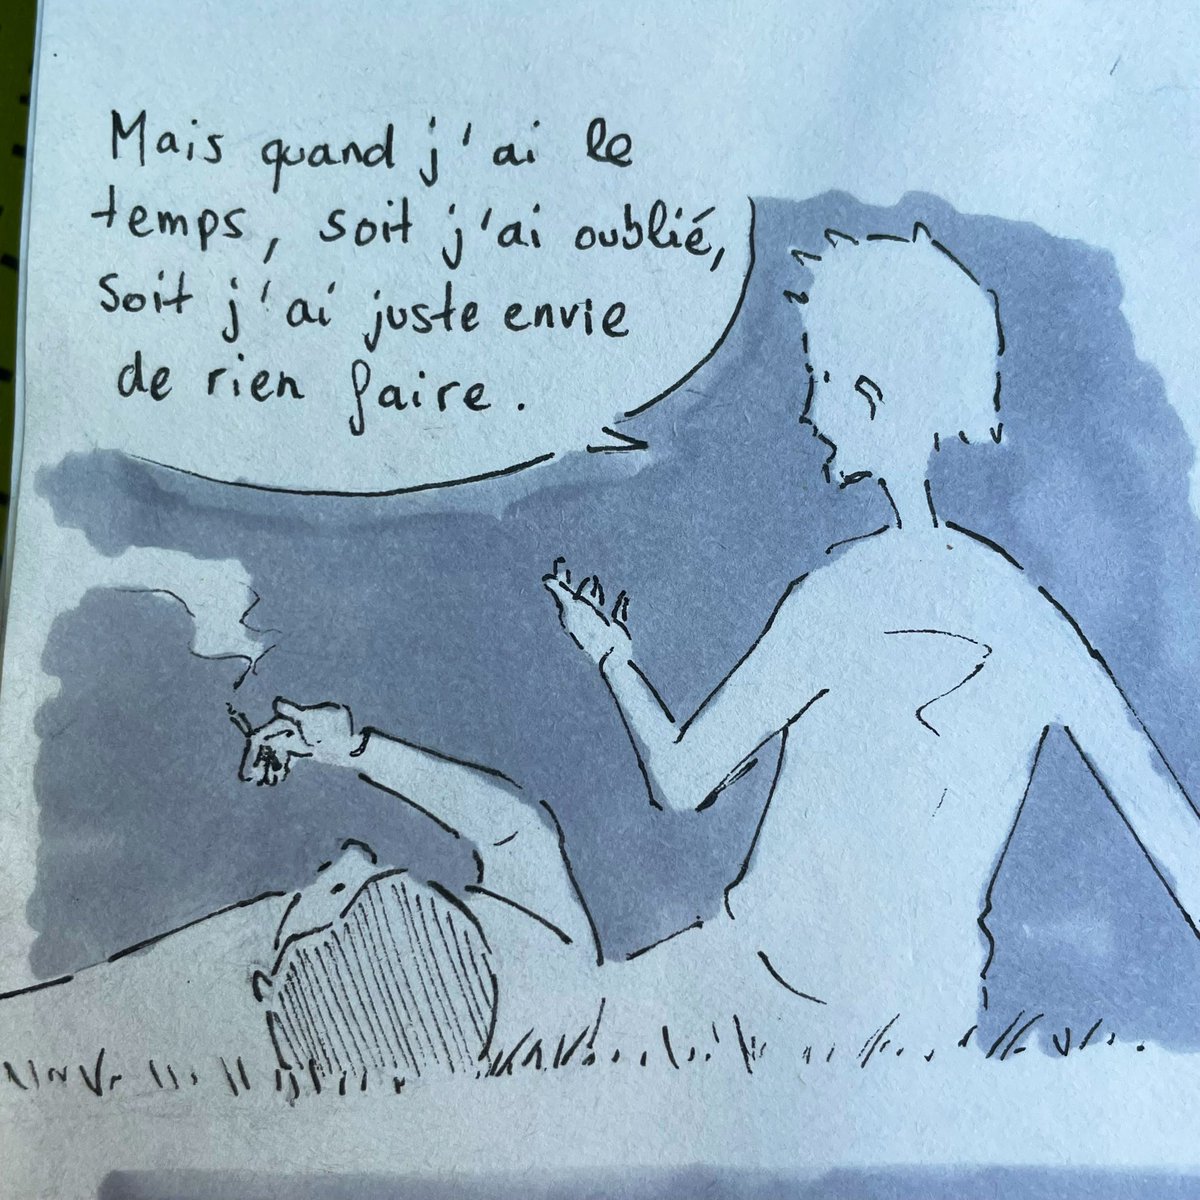 Mais quand j'ai le
temps, soit j'ai oublié,
soit j'ai juste envie
de rien faire.